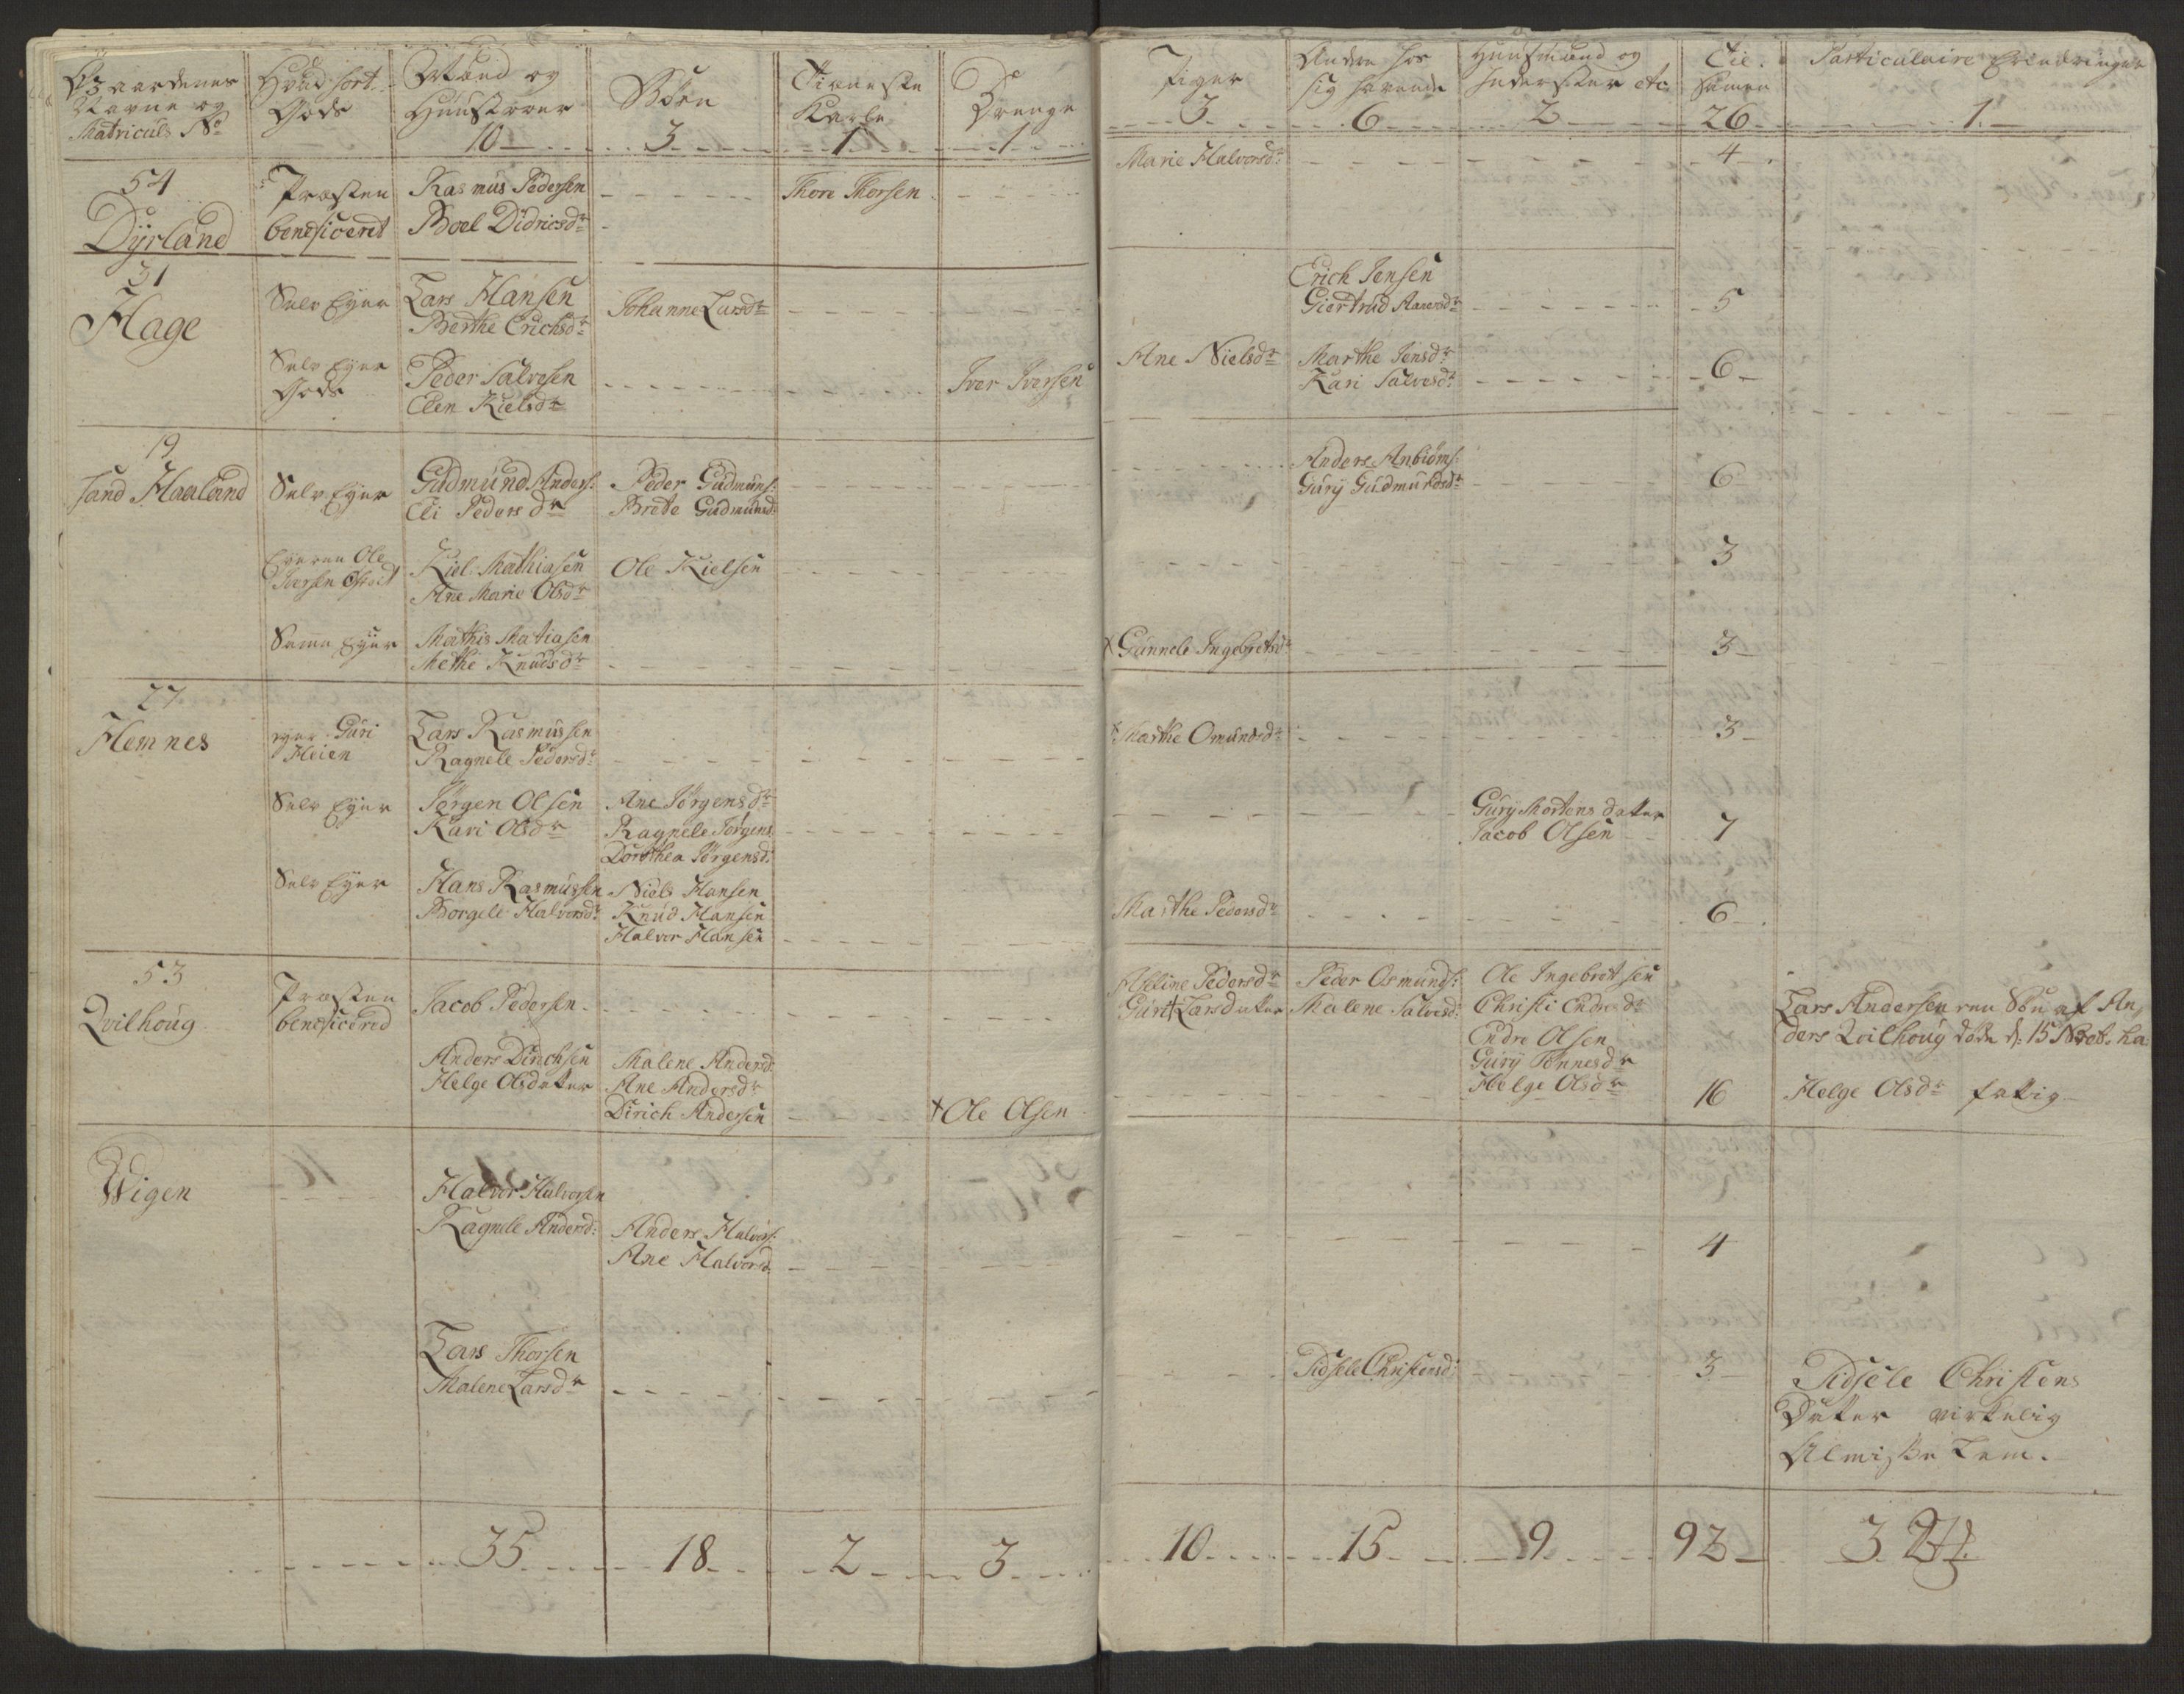 Gaardenes
Navne og
Matriculs No
Hvad sort
Gods
Mænd og
Hustroer
Børn
Tieneste
Karle
Drenge
Piger
Andre hos
sig havende
Huusmænd og
Inderster etc.
Tilsamen
Particulaire Erindringer
10 3 1 1 3 6 2 26 1
54
Dyrland
Præsten
beneficeret
Rasmus Pedersen
Boel Didricsdr
Thore Thorsen
Marie Halvorsd:
4
31
Hage
Selv Eyer
Lars Hansen
Berthe Erichsdr
Johanne Larsdr
Erich Jensen
Giertrud Aanensdr
5
Selv Eyer
Gods
Peder Salvesen
Elen Kielsdr
Iver Iversen
Ane Nielsdr
Marthe Jensdr
Kari Salvesdr
6
19
Sand Haaland
Selv Eyer
Gudmund Anders:
Eli Pedersdr
Peder Gudmunds:
Brete Gudmunsd:
Anders Anbiørns:
Gury Gudmundsdr
6
Eyeren Ole
Kiel Mathiasen
Ane Marie Olsdr
Ole Kielsen
3
Same Eyer
Mathis Matiasen
Methe Knudsdr
+ Gunnele Ingebretsdr
3
27
Hemnes
eyer Guri
Heien
Lars Rasmussen
Ragnele Pedersdr
+ Marthe Omundsdr
3
Selv Eyer
Jørgen Olsen
Kari Olsdr
Ane Jørgensdr
Ragnele Jørgens
Dorthea Jørgensd:
Gury Mortens datter
Jacob Olsen
7
Selv Eyer
Hans Rasmussen
Borgele Halvorsdr
Niels Hansen
Knud Hansen
Halvor Hansen
Marthe Pedersdr
6
53
Qvilhoug
Præsten
beneficered
Jacob Pedersen
Aseline Pedersdr
Guri + Larsdatter
Peder Osmunds:
Malene Salvesd:
Ole Ingebretsen
Christi Endresdr
Endre Olsen
Gury Tønnesdr
Helge Olsdr
Lars Andersen een Søn af An
ders Qvilhoug døde d: 15
Anders Dirichsen
Helge Olsdatter
Malene Andersd:
Ane Andersdr
Dirich Andersen
+ Ole Olsen
16
Helge Olsdr fattig
Wigen
Halvor Halvorsen
Ragnele Andersd:
Anders Halvors:
Ane Halvorsd:
4
Lars Thorsen
Malene Larsdr
Sidsele Christensd:
3
Sidsele Christens
Datter virkelig
Almisse Lem.
35 18 2 3 10 15 9 92 3